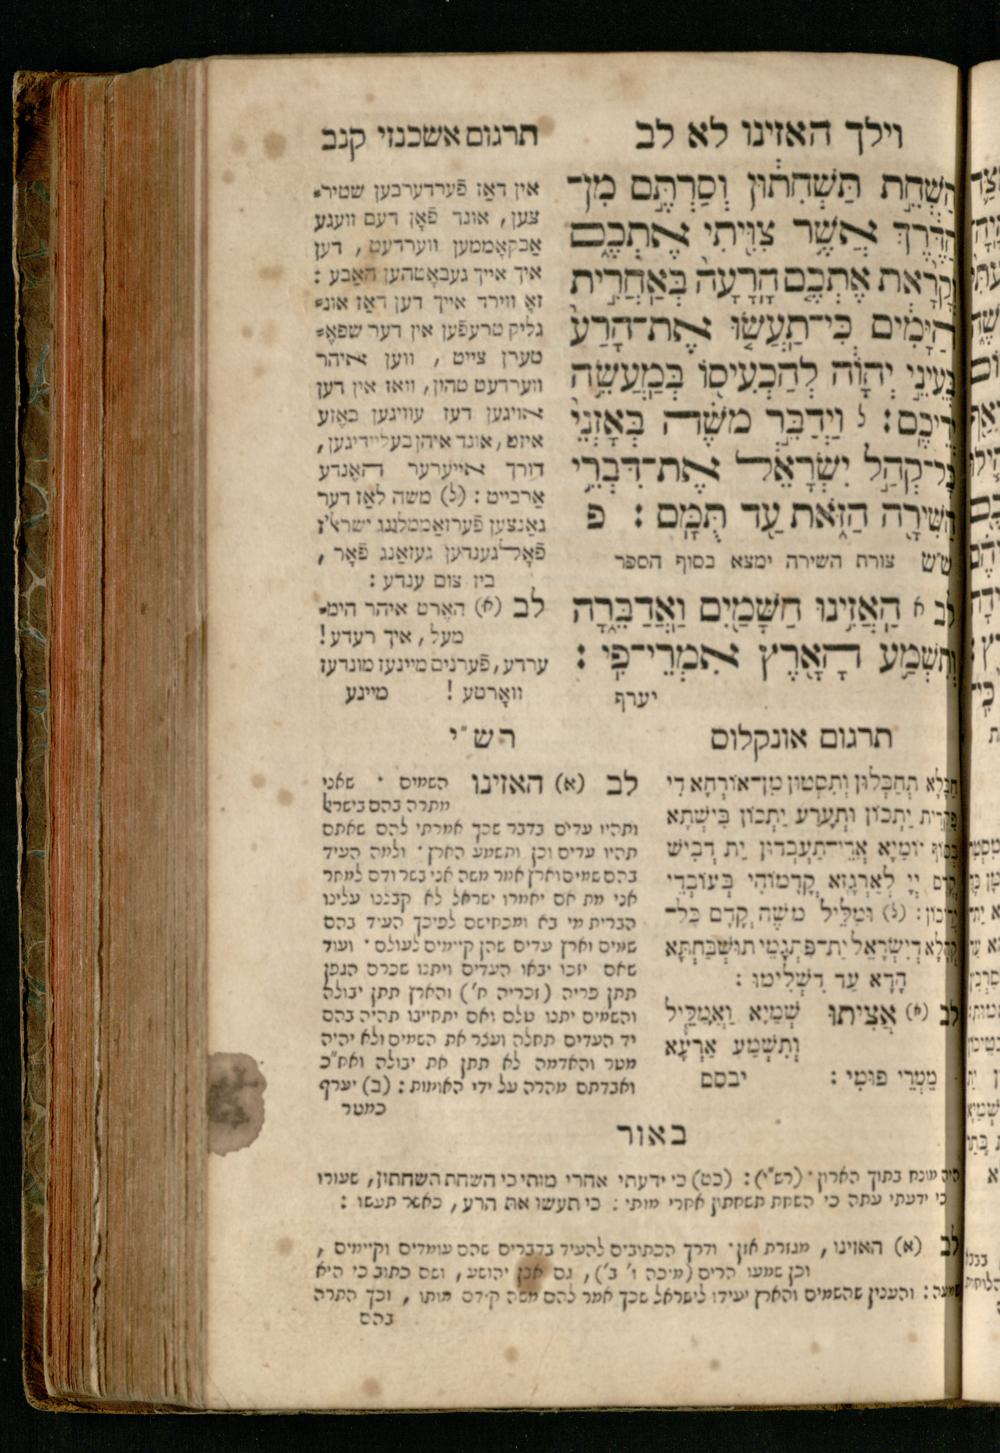 וילך האזינו לא לב
תרגום אשכנזי קנב
הַשְׁחֵת תַּשְׁחִתוּן וְסַרְתֶּם מִן־
הַדֶּרֶךְ אֲשֶׁר צִוִּיתִי אֶתְכֶם
וְקָרָאת אֶתְכֶם הָרָעָה בְּאַחֲרִית
הַיָּמִים כִּי־תַעֲשׂוּ אֶת־הָרַע
בְּעֵינֵי יְהוָֹה לְהַכְעִיסוֹ בְּמַעֲשֵׂה
יְדֵיכֶם׃ ל וַיְדַבֵּר משֶׁה בְּאָזְנֵי
כָּל־קְהַל יִשְׂרָאֵל אֶת־דִּבְרֵי
הַשִּׁירָה הַזֹּאת עַד תֻּמָּם׃ פ
ש״ש צורת השירה ימצא בסוף הספר
לב א הַאֲזִינוּ הַשָּׁמַיִם וַאֲדַבֵּרָה
וְתִשְׁמַע הָאָרֶץ אִמְרֵי־פִי׃
יערף
אין דאַז פֿערדערבען שטיר־
צען, אונד פֿאָן דעם וועגע
אַבקאָממען ווערדעט, דען
איך אייך געבאָטהען האַבע :
זאָ ווירד אייך דען דאַז אונ־
גליק טרעפֿען אין דער שפּאֶ־
טערן צייט, ווען איהר
ווערדעט טהון, וואז אין דען
אויגען דעז עוויגען באֶזע
איזט, אונד איהן בעליידיגען,
דורך אייערער האֶנדע
אַרבייט : (ל) משה לאַז דער
גאנצען פֿערזאַממלונג ישראל׳ז
פֿאָלגענדען געזאַנג פֿאָר,
בין צום ענדע :
לב (א) האֶרט איהר הימ־
מעל, איך רעדע!
ערדע, פֿערנים מיינעז מונדעז
וואָרטע ! מיינע
תרגום אונקלוס
חַבָּלָא תְחַבְּלוּן וְתִסְטוּן מִן־אוֹרְחָא דִי
פַקֵּדִית יַתְכוֹן וּתְעָרַע יַתְכוֹן בִּישְׁתָא
בְּסוֹף יוֹמַיָּא אֲרֵי־תַעְבְּדוּן יַת דְּבִישׁ
קֳדָם יְיָ לְאַרְגָּזָא קֳדָמוֹהִי בְּעוֹבָדֵי
יְדֵיכוֹן : (ל) וּמַלֵּיל משֶׁה קֳדָם כָּל־
קְהָלָא דְיִשְׂרָאֵל יַת־פִּתְגָּמֵי תוּשְׁבַּחְתָּא
הָדָא עַד דִּשְׁלִימוּ :
לב (א) אֲצִיתוּ שְׁמַיָּא וַאֲמַלֵּיל
וְתִשְׁמַע אַרְעָא
מֵמְרֵי פוּמִי : יבסם
רש״י
לב (א) האזינו השמים · שאני
מתרה בהם בישראל
ותהיו עדים בדבר שכך אמרתי להם שאתם
תהיו עדים וכן ותשמע הארץ · ולמה העיד
בהם שמים וארץ אמר משה אני בשר ודם למחר
אני מת אם יאמרו ישראל לא קבלנו עלינו
הברית מי בא ומכחישם לפיכך העיד בהם
שמים וארץ עדים שהן קיימים לעולם · ועוד
שאם יזכו יבאו העדים ויתנו שכרם הגפן
תתן פריה (זכריה ח׳) והארץ תתן יבולה
והשמים יתנו טלם ואם יתחייבו תהיה בהם
יד העדים תחלה ועצר את השמים ולא יהיה
מטר והאדמה לא תתן את יבולה ואח״כ
ואבדתם מהרה על ידי האומות : (ב) יערף
כמטר
באור
היה מונח בתוך הארון · (רש״י) : (כט) כי ידעתי אחרי מותי כי השחת תשחתון, שעורו
כי ידעתי עתה כי השחת תשחתון אחרי מותי : כי תעשו את הרע, כאשר תעשו :
לב (א) האזינו, מגזרת אזן · ודרך הכתובים להעיד בדברים שהם עומדים וקיימים,
וכן שמעו הרים (מיכה ו׳ ב׳), גם אבן יהושע, ושם כתוב כי היא
שמעה : והענין שהשמים והארץ יעידו לישראל שכך אמר להם משה קודם מותו, וכך התרה
בהם